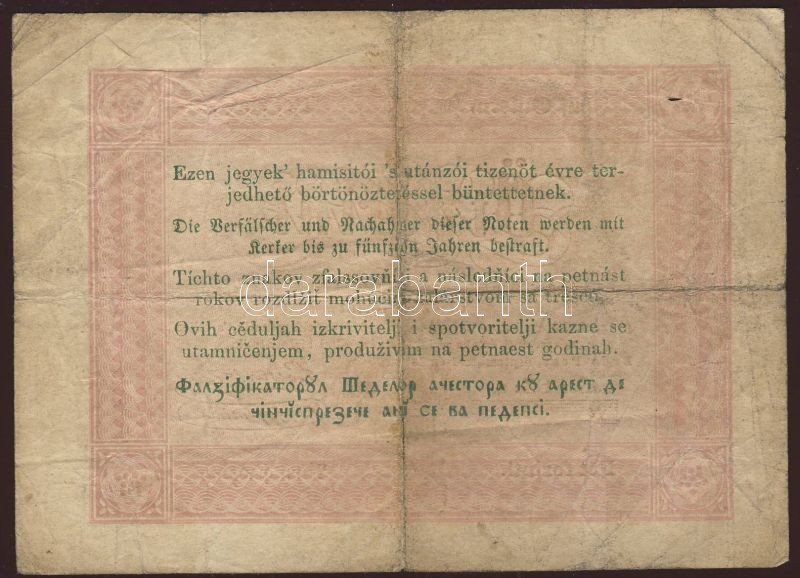 Ezen jegyek' hamisitói 's utánzói tizenöt évre ter-
jedhető börtönöztetéssel büntettetnek.
Die Verfälscher und Nachahmer dieser Noten werden mit
Kerker bis zu fünfzehn Jahren bestraft.
Tíchto znakov zfalšovňíci a následňíci na petnást
rokov rozdlžiť mohúcim žalárstvom sa trescú.
Ovih cěduljah izkrivitelji i spotvoritelji kazne se
utamničenjem, produživim na petnaest godinah.
Фалꙅіфікаторꙋл Шеделор ачестора кꙋ арест де
чінчіспреꙅече анї се ва педепсі.
darabanth